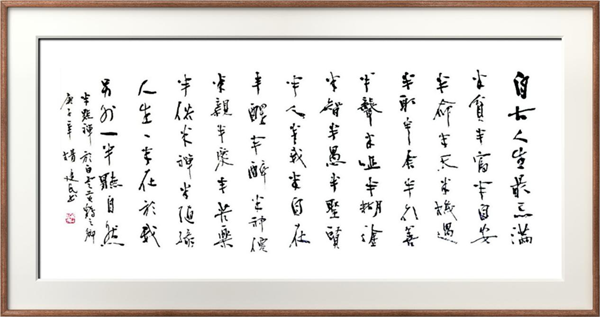 自古人生最忌滿
半貧半富半自安
半命半天半機遇
半取半舍半行善
半聾半啞半糊塗
半智半愚半聖賢
半人半我半自在
半醒半醉半神仙
半親半愛半苦樂
半俗半禪半隨緣
人生一半在於我
另外一半聽自然
半禪於白雲黃鶴之鄉
庚子年楊建民書